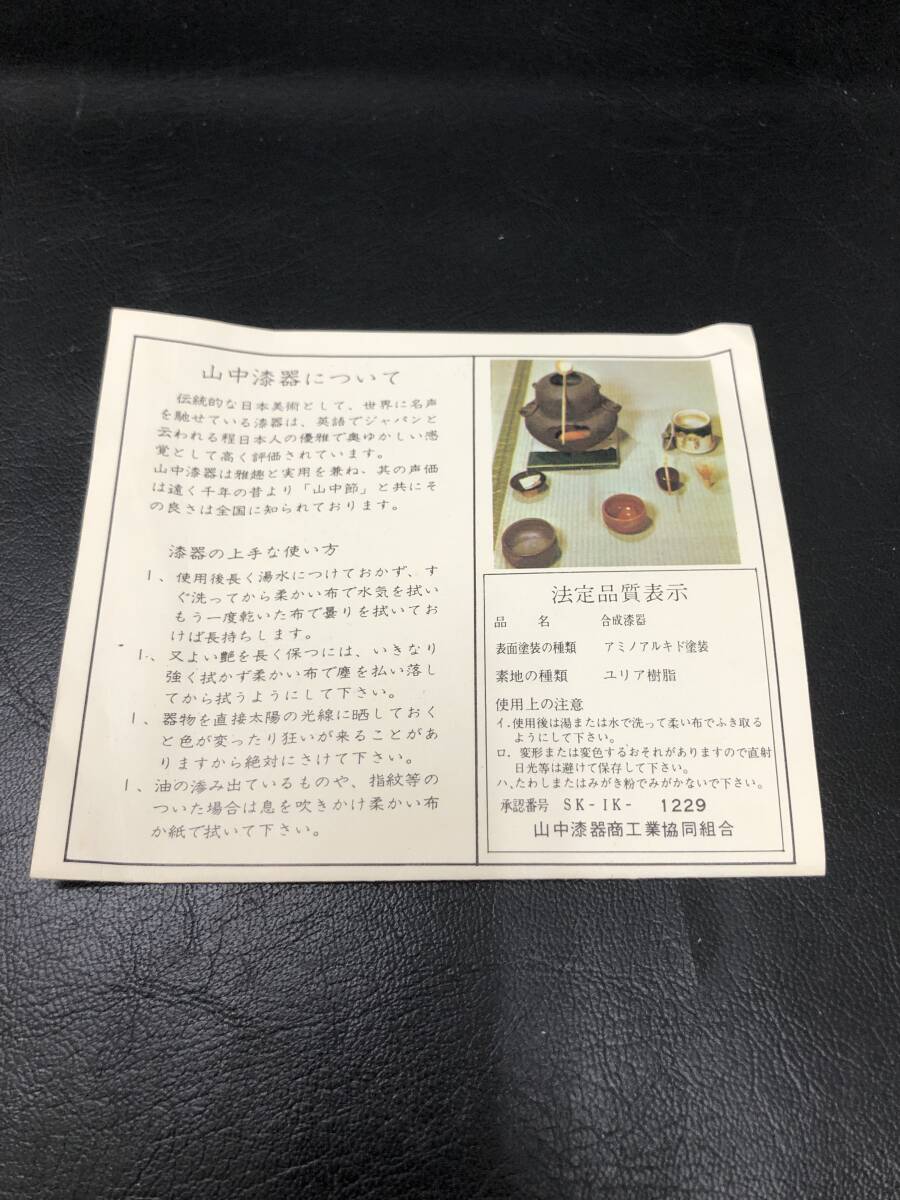 山中漆器について
伝統的な日本美術として、世界に名声
を馳せている漆器は、英語でジャパンと
云われる程日本人の優雅で奥ゆかしい感
覚として高く評価されています。
山中漆器は雅趣と実用を兼ね、其の声価
は遠く千年の昔より「山中節」と共にそ
の良さは全国に知られております。
漆器の上手な使い方
1、使用後長く湯水につけておかず、す
ぐ洗ってから柔かい布で水気を拭い
もう一度乾いた布で曇りを拭いてお
けば長持ちします。
1、又よい艶を長く保つには、いきなり
強く拭かず柔かい布で塵を払い落し
てから拭うようにして下さい。
1、器物を直接太陽の光線に晒しておく
と色が変ったり狂いが来ることがあ
りますから絶対にさけて下さい。
1、油の滲み出ているものや、指紋等の
ついた場合は息を吹きかけ柔かい布
か紙で拭いて下さい。
法定品質表示
品名 合成漆器
表面塗装の種類 アミノアルキド塗装
素地の種類 ユリア樹脂
使用上の注意
イ.使用後は湯または水で洗って柔い布でふき取る
ようにして下さい。
ロ.変形または変色するおそれがありますので直射
日光等は避けて保存して下さい。
ハ、たわしまたはみがき粉でみがかないで下さい。
承認番号 SK-IK- 1229
山中漆器商工業協同組合